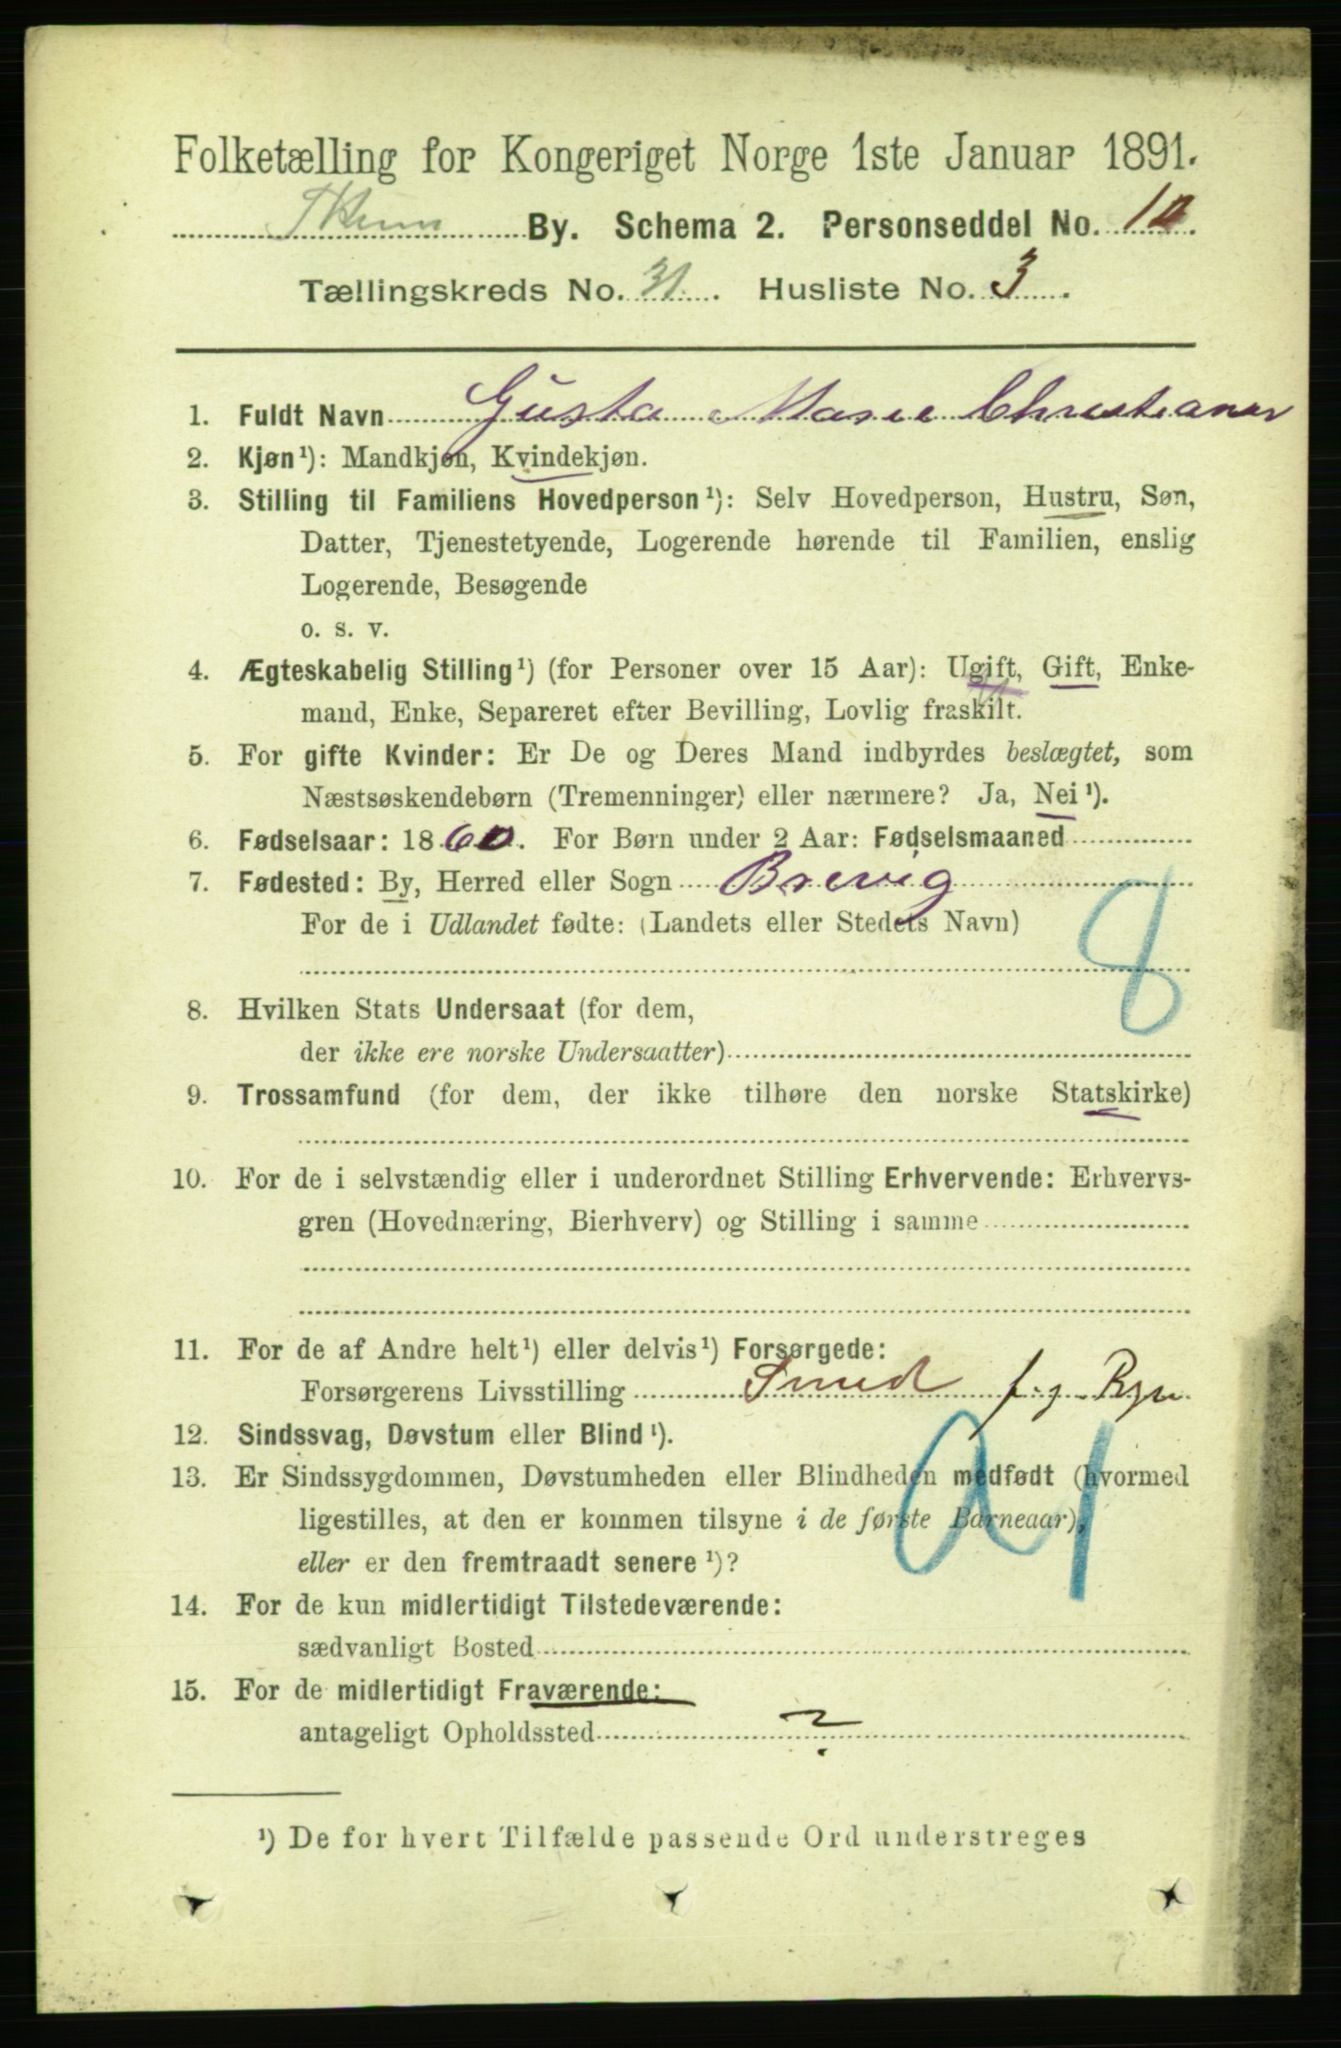 Folketælling for Kongeriget Norge 1ste Januar 1891.
By. Schema 2. Personseddel No. 10.
Tællingskreds No. 31. Husliste No. 3.
1. Fuldt Navn Gusta Marie
2. Kjøn¹): Mandkjøn, Kvindekjøn.
3. Stilling til Familiens Hovedperson¹): Selv Hovedperson, Hustru, Søn,
Datter, Tjenestetyende, Logerende hørende til Familien, enslig
Logerende, Besøgende
o. s. v.
4. Ægteskabelig Stilling¹) (for Personer over 15 Aar): Ugift, Gift, Enke-
mand, Enke, Separeret efter Bevilling, Lovlig fraskilt.
5. For gifte Kvinder: Er De og Deres Mand indbyrdes beslægtet, som
Næstsøskendebørn (Tremenninger) eller nærmere? Ja, Nei¹).
6. Fødselsaar: 1860. For Børn under 2 Aar: Fødselsmaaned
7. Fødested: By, Herred eller Sogn Brevig
For de i Udlandet fødte: (Landets eller Stedets Navn)
8
8. Hvilken Stats Undersaat (for dem,
der ikke ere norske Undersaatter)
9. Trossamfund (for dem, der ikke tilhøre den norske Statskirke)
10. For de i selvstændig eller i underordnet Stilling Erhvervende: Erhvervs-
gren (Hovednæring, Bierhverv) og Stilling i samme
11. For de af Andre helt¹) eller delvis¹) Forsørgede:
Forsørgerens Livsstilling Smed
12. Sindssvag, Døvstum eller Blind¹).
13. Er Sindssygdommen, Døvstumheden eller Blindheden medfødt (hvormed
ligestilles, at den er kommen tilsyne i de første Barneaar),
eller er den fremtraadt senere¹)?
14. For de kun midlertidigt Tilstedeværende:
sædvanligt Bosted
15. For de midlertidigt Fraværende:
antageligt Opholdssted ?
¹) De for hvert Tilfælde passende Ord understreges